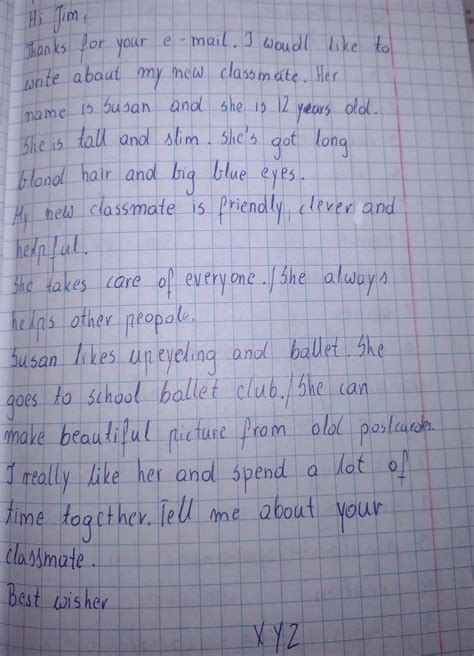 Hi Jim,
Thanks for your e-mail. I woudl like to
write about my new classmate. Her
name is Susan and she is 12 years old.
She is tall and slim. She's got long
blond hair and big blue eyes.
My new classmate is friendly, clever and
helpful.
She takes care of everyone./She always
helps other peopole.
Susan likes upcycling and ballet. She
goes to school ballet club./She can
make beautiful picture from old postcards.
I really like her and spend a lot of
time together. Tell me about your
classmate.
Best wisher
XYZ